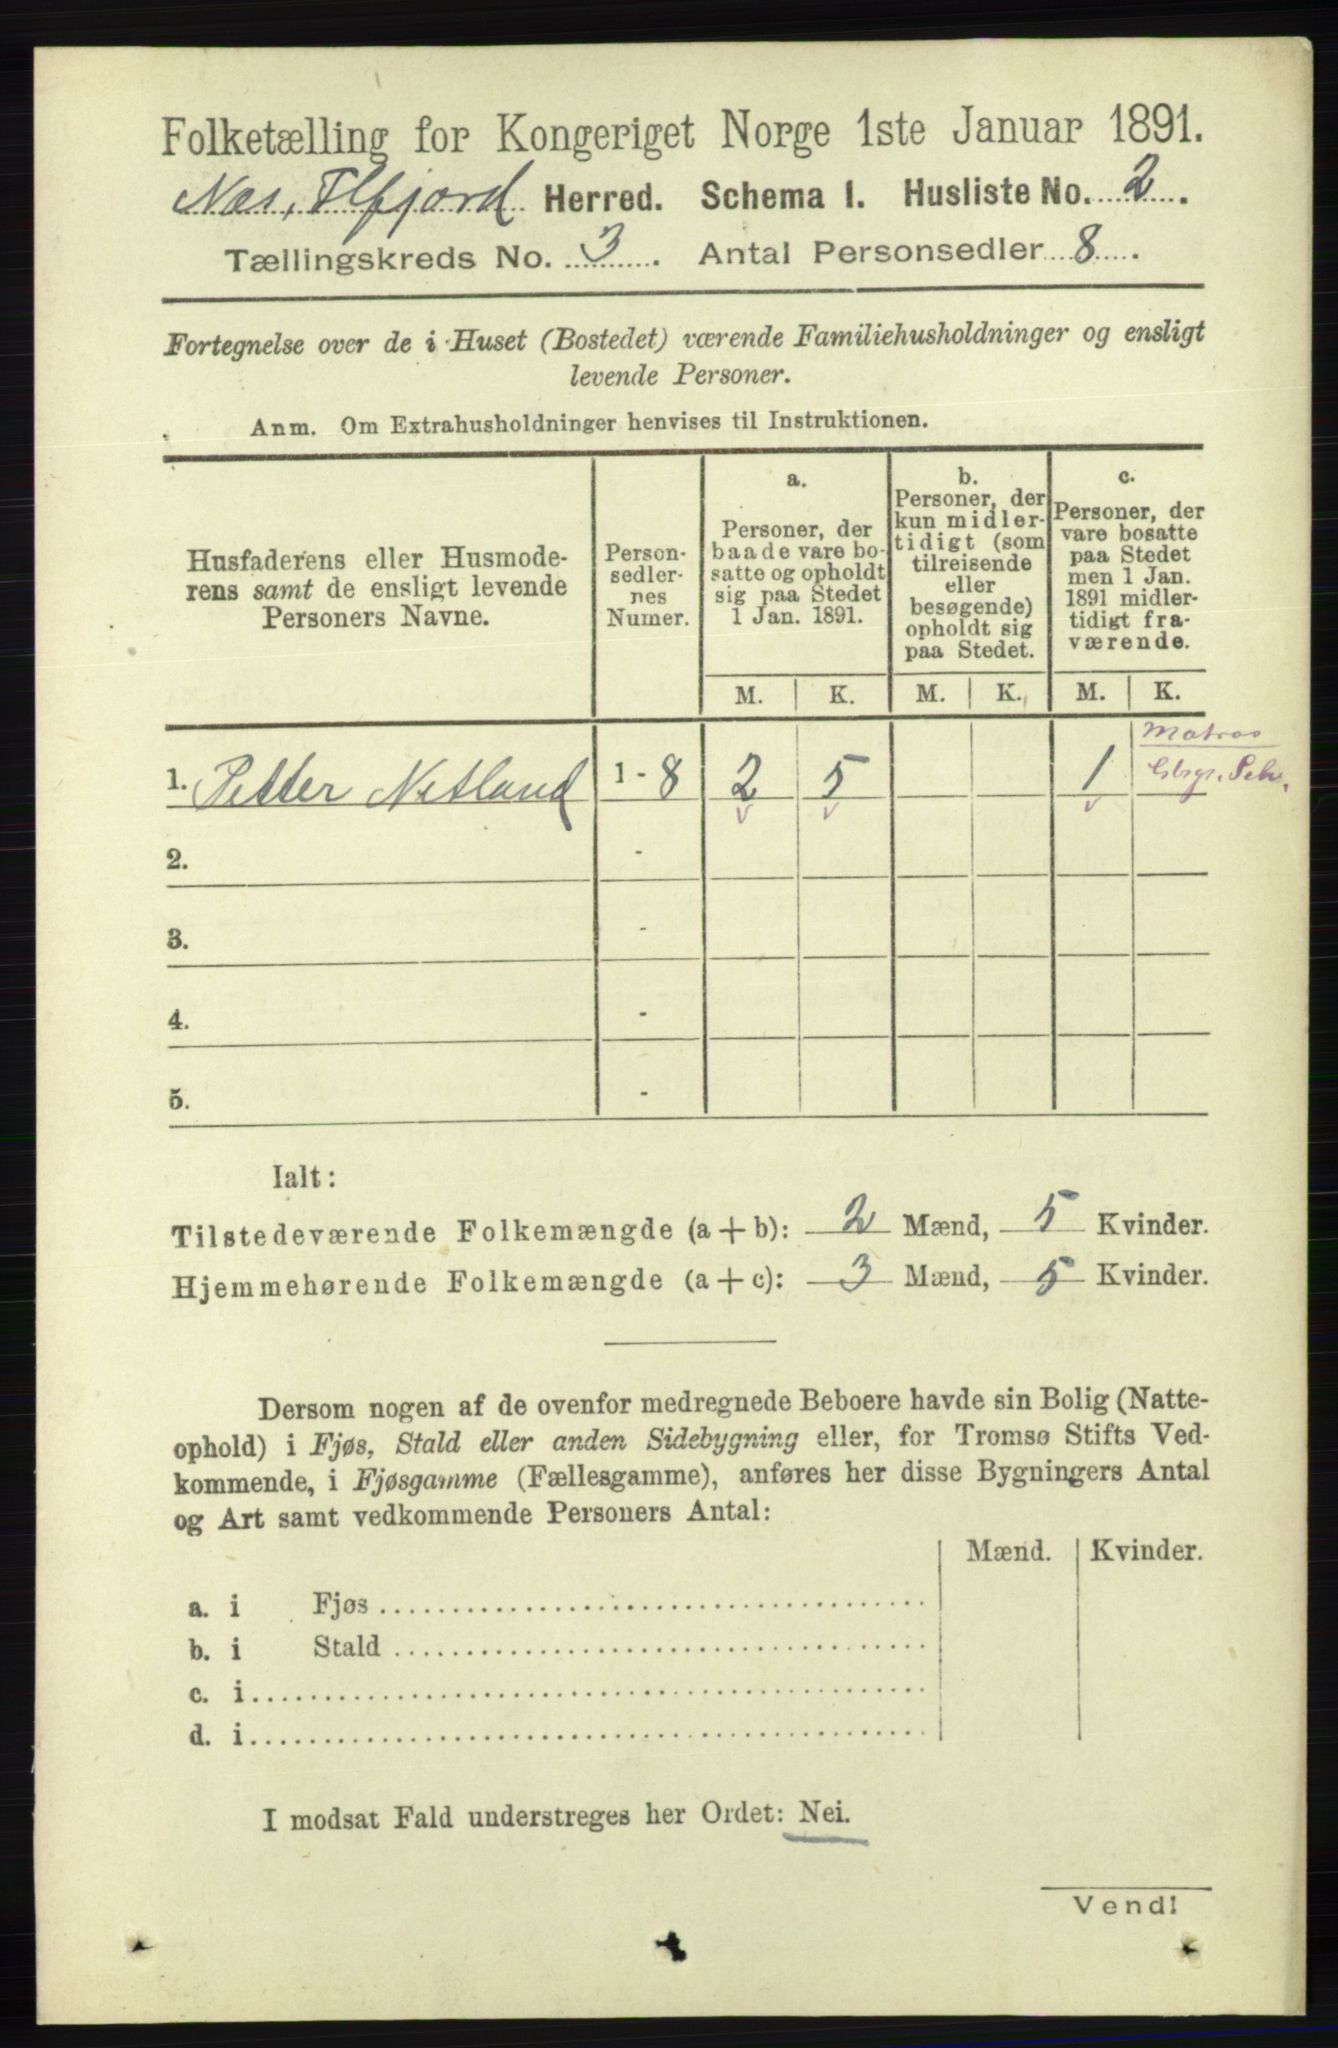 Folketælling for Kongeriget Norge 1ste Januar 1891.
Næs, Flfjord Herred. Schema I. Husliste No. 2.
Tællingskreds No. 3. Antal Personsedler 8.
Fortegnelse over de i Huset (Bostedet) værende Familiehusholdninger og ensligt
levende Personer.
Anm. Om Extrahusholdninger henvises til Instruktionen.
Husfaderens eller Husmode-
rens samt de ensligt levende
Personers Navne.
Person-
sedler-
nes
Numer.
a.
Personer, der
baade vare bo-
satte og opholdt
sig paa Stedet
1 Jan. 1891.
b.
Personer, der
kun midler-
tidigt (som
tilreisende
eller
besøgende)
opholdt sig
paa Stedet.
c.
Personer, der
vare bosatte
paa Stedet
men 1 Jan.
1891 midler-
tidigt fra-
værende.
M. K. M. K. M. K.
Matros
1. Petter Netland 1 - 8 2 5 1
2. -
3. -
4. -
5. -
Ialt:
Tilstedeværende Folkemængde (a + b): 2 Mænd, 5 Kvinder.
Hjemmehørende Folkemængde (a + c): 3 Mænd, 5 Kvinder.
Dersom nogen af de ovenfor medregnede Beboere havde sin Bolig (Natte-
ophold) i Fjøs, Stald eller anden Sidebygning eller, for Tromsø Stifts Ved-
kommende, i Fjøsgamme (Fællesgamme), anføres her disse Bygningers Antal
og Art samt vedkommende Personers Antal:
Mænd. Kvinder.
a. i Fjøs
b. i Stald
c. i
d. i
I modsat Fald understreges her Ordet: Nei.
Vend!